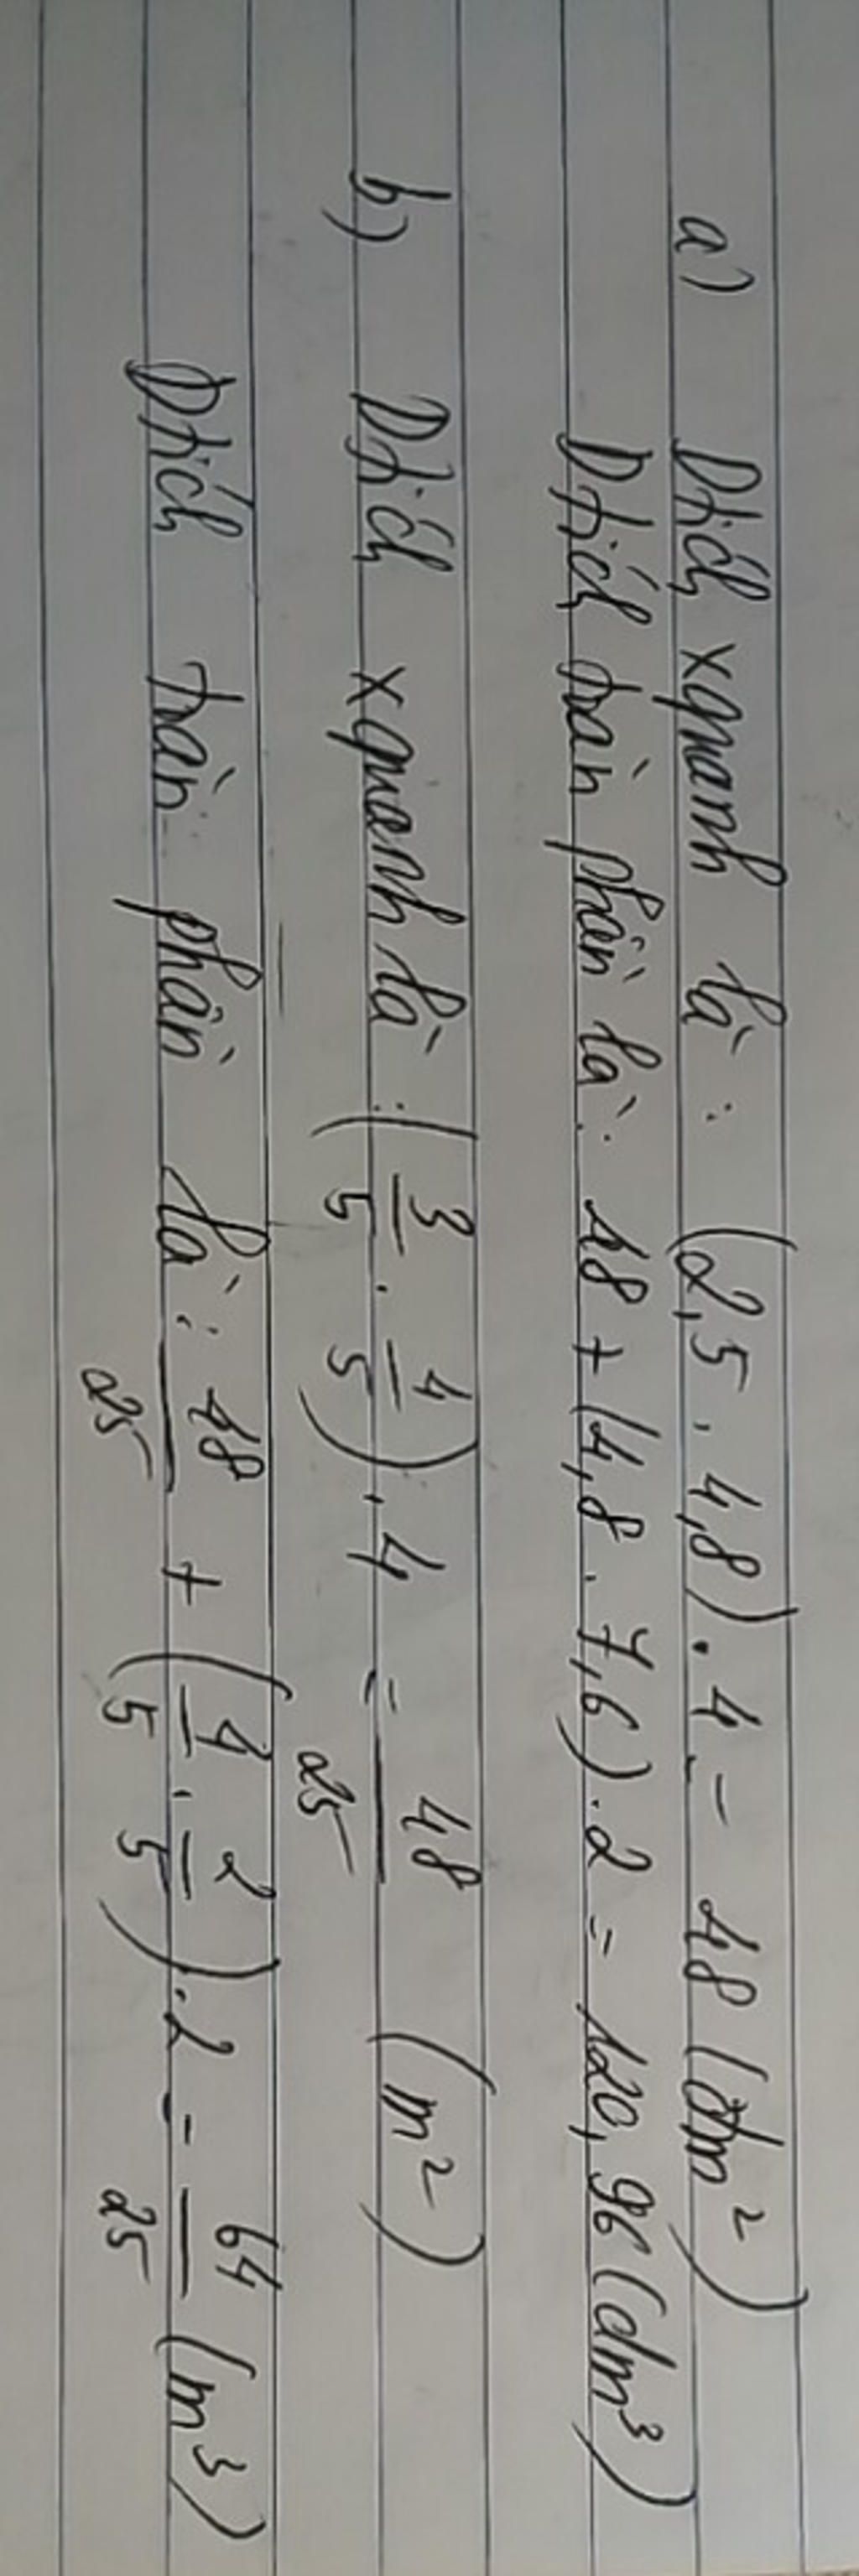 a) Dtích xquanh là : (2,5 . 4,8) . 4 = 48 (dm²)
Dtích toàn phần là: 48 + (4,8 . 7,6) . 2 = 120,96 (dm³)
b) Dtích xquanh là : (3/5 . 4/5) . 4 = 48/25 (m²)
Dtích toàn phần là : 48/25 + (4/5 . 2/5) . 2 = 64/25 (m³)